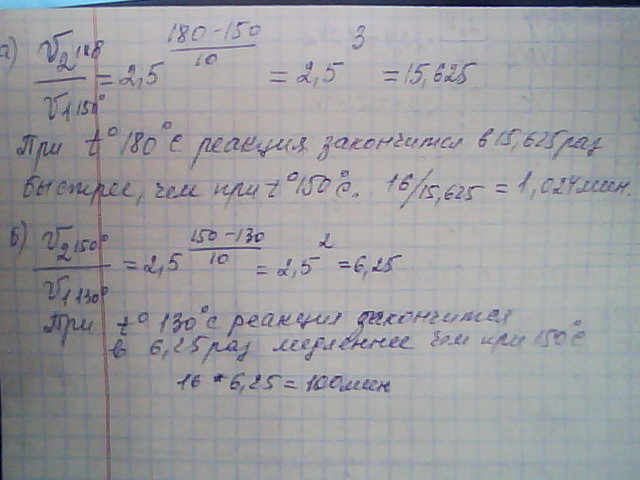 а) V₂ 180° / V₁ 150° = 2,5^((180-150)/10) = 2,5³ = 15,625
При t° 180°C реакция закончится в 15,625 раз
быстрее, чем при t° 150°C. 16/15,625 = 1,024 мин.
б) V₂ 150° / V₁ 130° = 2,5^((150-130)/10) = 2,5² = 6,25
При t° 130°C реакция закончится
в 6,25 раз медленнее чем при 150°C
16 * 6,25 = 100 мин